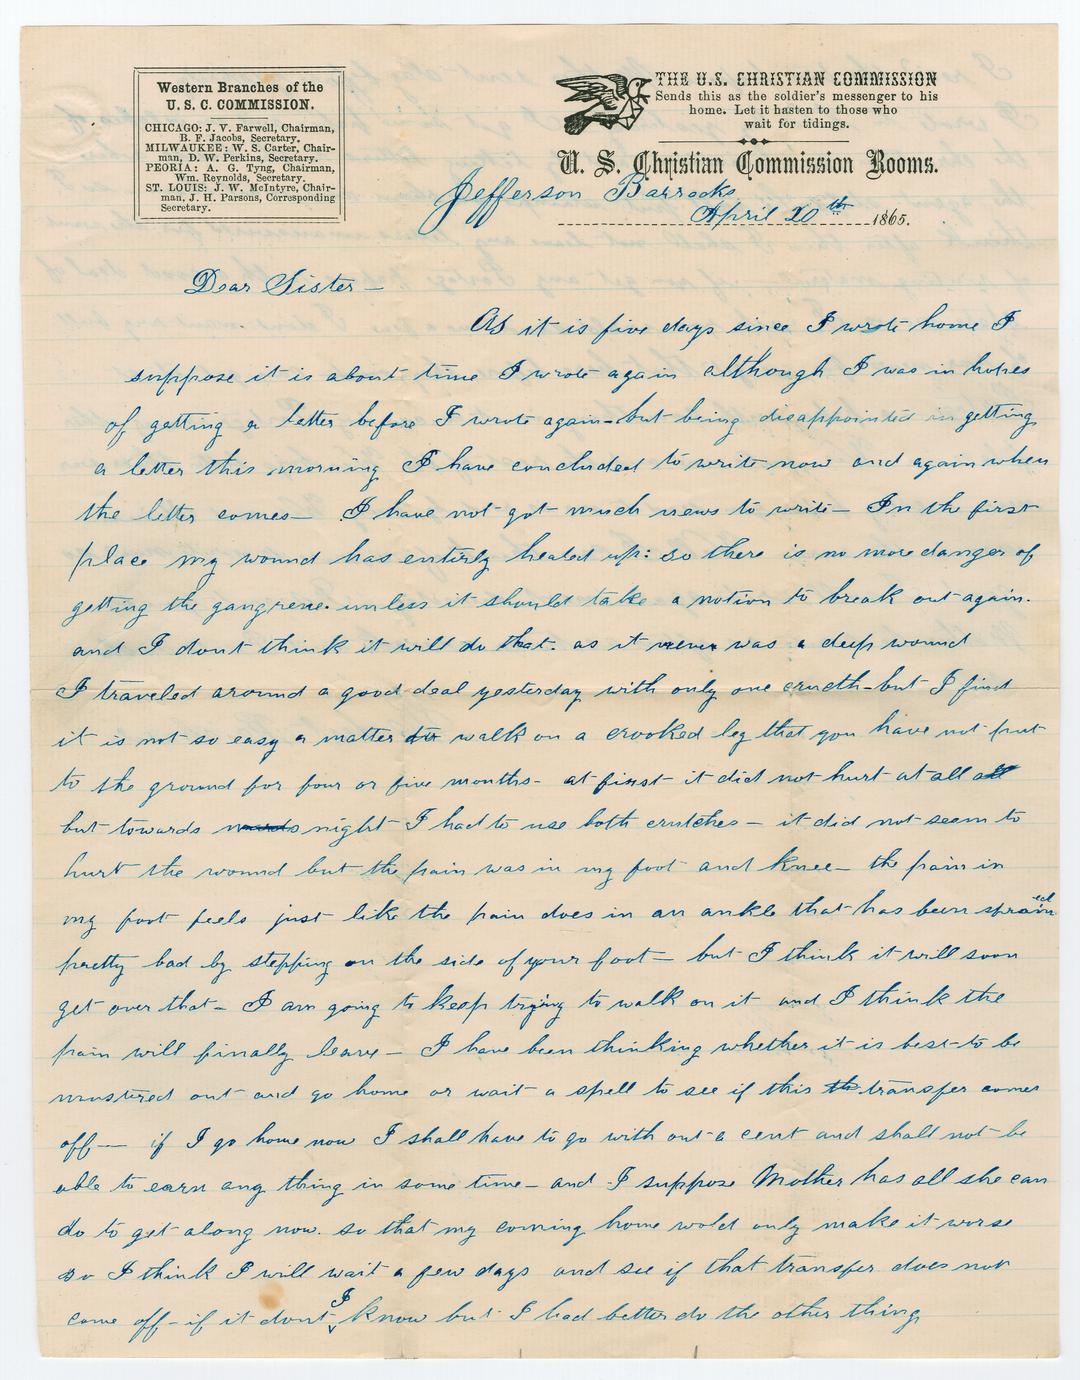 Western Branches of the
U. S. C. COMMISSION.
CHICAGO: J. V. Farwell, Chairman,
B. F. Jacobs, Secretary.
MILWAUKEE: W. S. Carter, Chair-
man, D. W. Perkins, Secretary.
PEORIA: A. G. Tyng, Chairman,
Wm. Reynolds, Secretary.
ST. LOUIS: J. W. McIntyre, Chair-
man, J. H. Parsons, Corresponding
Secretary.
THE U.S. CHRISTIAN COMMISSION
Sends this as the soldier's messenger to his
home. Let it hasten to those who
wait for tidings.
U. S. Christian Commission Rooms.
Jefferson Barracks
April 20th 1865.
Dear Sister —
As it is five days since I wrote home I
suppose it is about time I wrote again although I was in hopes
of getting a letter before I wrote again – but being disappointed in getting
a letter this morning I have concluded to write now and again when
the letter comes — I have not got much news to write — In the first
place my wound has entirly healed up: so there is no more danger of
getting the gangrene. unless it should take a notion to break out again.
and I dont think it will do that. as it never was a deep wound
I traveled around a good deal yesterday with only one cructh – but I find
it is not so easy a matter to walk on a crooked leg that you have not put
to the ground for four or five months – at first it did not hurt at all all
but towards wards night I had to use both crutches — it did not seem to
hurt the wound but the pain was in my foot and knee — the pain in
my foot feels just like the pain does in an ankle that has been sprained
pretty bad by stepping on the side of your foot — but I think it will soon
get over that – I am going to keep trying to walk on it and I think the
pain will finally leave — I have been thinking whether it is best to be
mustered out and go home or wait a spell to see if this th transfer comes
off — if I go home now I shall have to go with out a cent and shall not be
able to earn any thing in some time – and I suppose Mother has all she can
do to get along now. so that my coming home wold only make it worse
so I think I will wait a few days and see if that transfer does not
come off – if it dont I know but I had better do the other thing